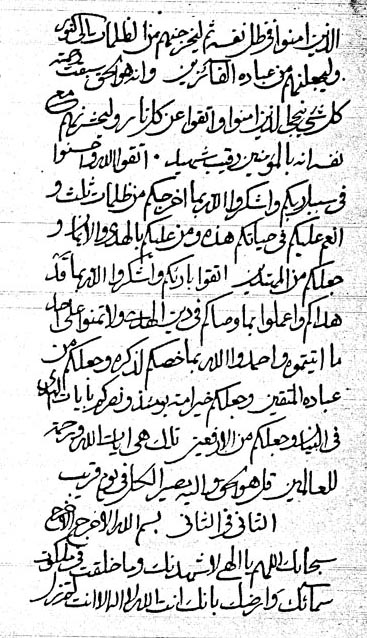 الذين امنوا في ظل نفسه ثم ليخرجنهم من الظلمات الى النور
وليجعلنهم من عباده الفائزين وانه هو الحق سبقت رحمته
كل شيء ينجي الذين امنوا واتقوا عن كل نار وليحشرنهم مع
نفسه انه بالمؤمنين رقيب شهيد اتقوا الله واحسنوا
في سبل ربكم واشكروا الله بما اخرجكم من ظلمات ثلث و
انعم عليكم في حياتكم هذه ومن عليكم بالهدى والايمان و
جعلكم من المهتدين اتقوا بارئكم واشكروا الله بما قد
هداكم واعملوا بما وصاكم في دين الله ولا تمنوا على احد
ما اتيتموه واحمدوا الله بما خصكم لذكره وجعلكم من
عباده المتقين وجعلكم خير امة يومئذ ونصركم بايات
في البيان وجعلكم من الرافعين تلك هي ايات الله ورحمة
للعالمين قل هو الحق واليه يصير الكل في يوم قريب
الثاني في الثاني بسم الله الافرج الافرج
سبحانك اللهم يا الهي لاشهدنك وما خلقت في
سمائك وارضك بانك انت الله لا اله الا انت